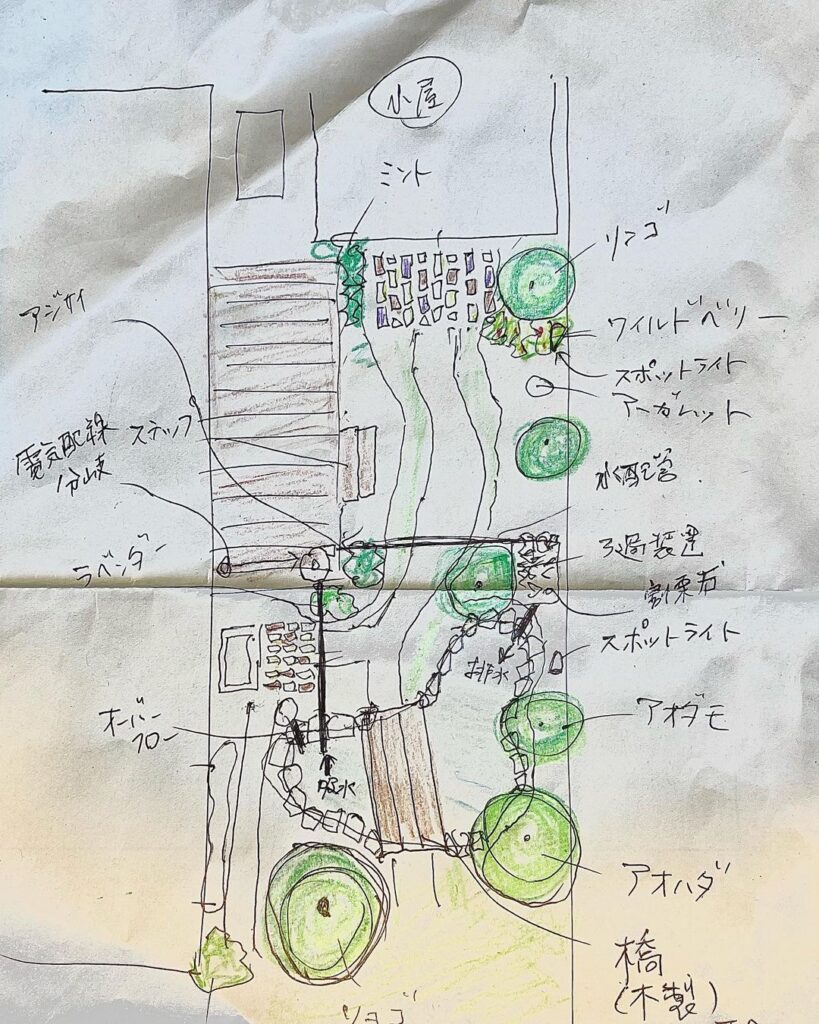 小屋
ミント
リンゴ
アジサイ
ワイルドベリー
スポットライト
アーガレット
ステップ
電気配線
分岐
水配管
ろ過装置
ラベンダー
割栗石
スポットライト
排水
オーバー
フロー
アオダモ
吸水
アオハダ
橋
(木製)
リョブ